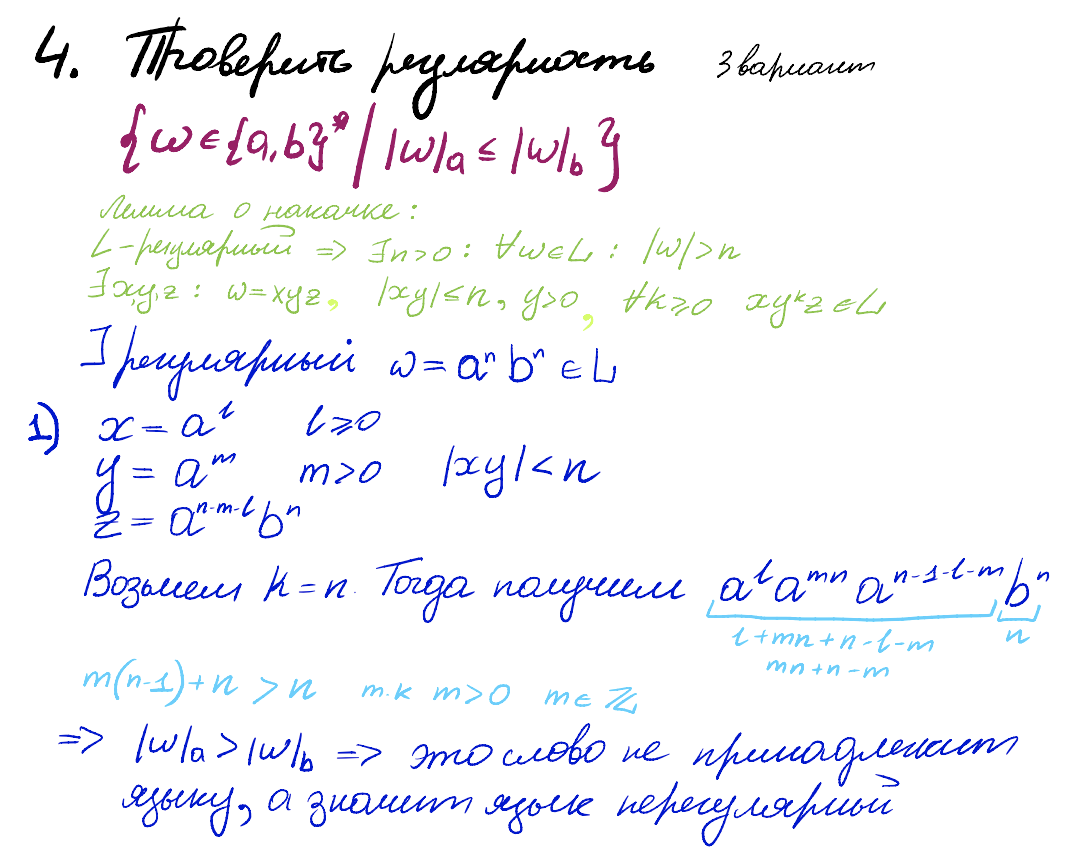 4. Проверить регулярность 3 вариант
{ω ∈ {a, b}* | |ω|ₐ ≤ |ω|_b}
Лемма о накачке:
L-регулярный => ∃n>0 : ∀ω∈L : |ω|>n
∃x,y,z : ω=xyz, |xy|≤n, y>0, ∀k≥0 xyᵏz∈L
] регулярный ω = aⁿbⁿ ∈ L
1) x = aˡ l≥0
y = aᵐ m>0 |xy|<n
z = aⁿ⁻ᵐ⁻ˡbⁿ
Возьмем k=n. Тогда получим aˡaᵐⁿaⁿ⁻¹⁻ˡ⁻ᵐbⁿ
l+mn+n-l-m n
mn+n-m
m(n-1)+n > n т.к m>0 m∈ℤ
=> |ω|ₐ>|ω|_b => это слово не принадлежит
языку, а значит язык нерегулярный